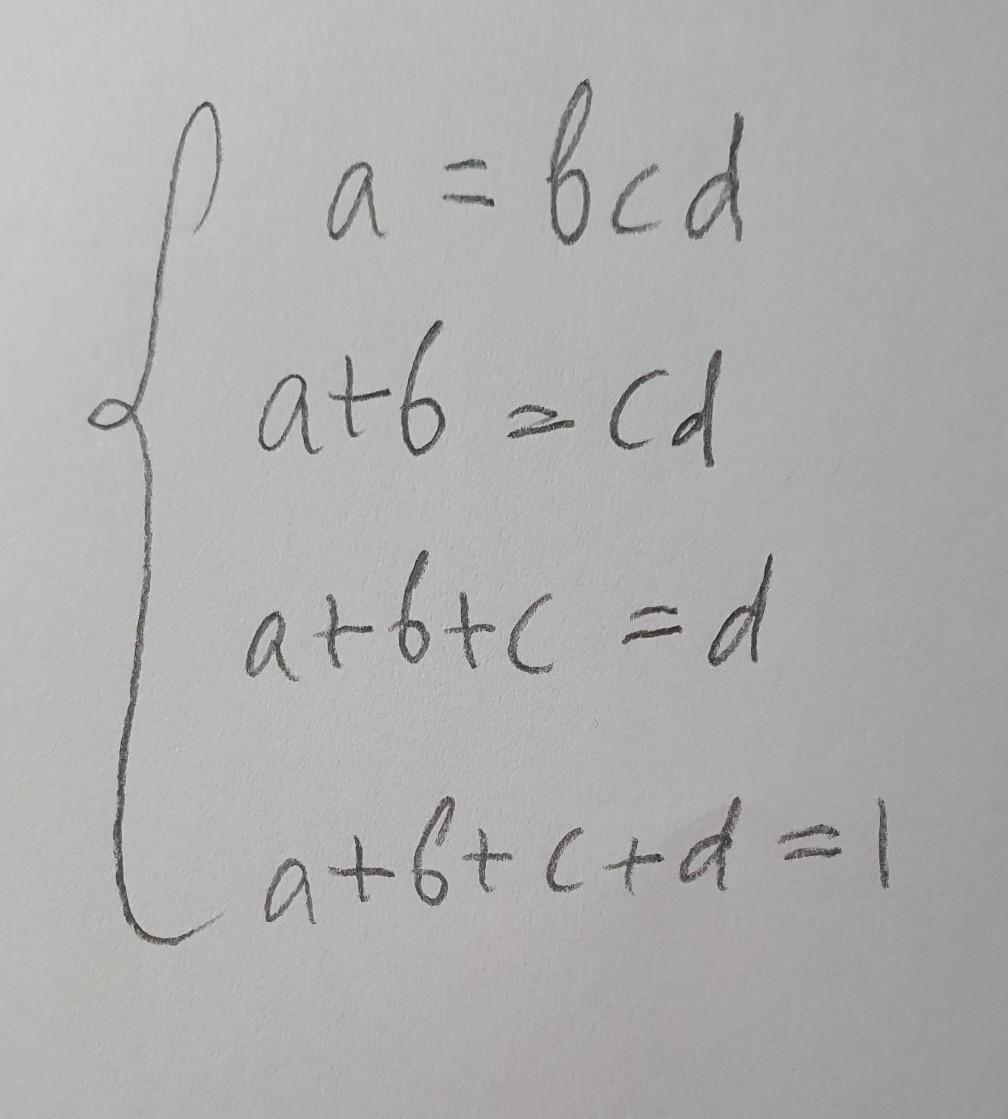 a = bcd
a+b = cd
a+b+c = d
a+b+c+d = 1